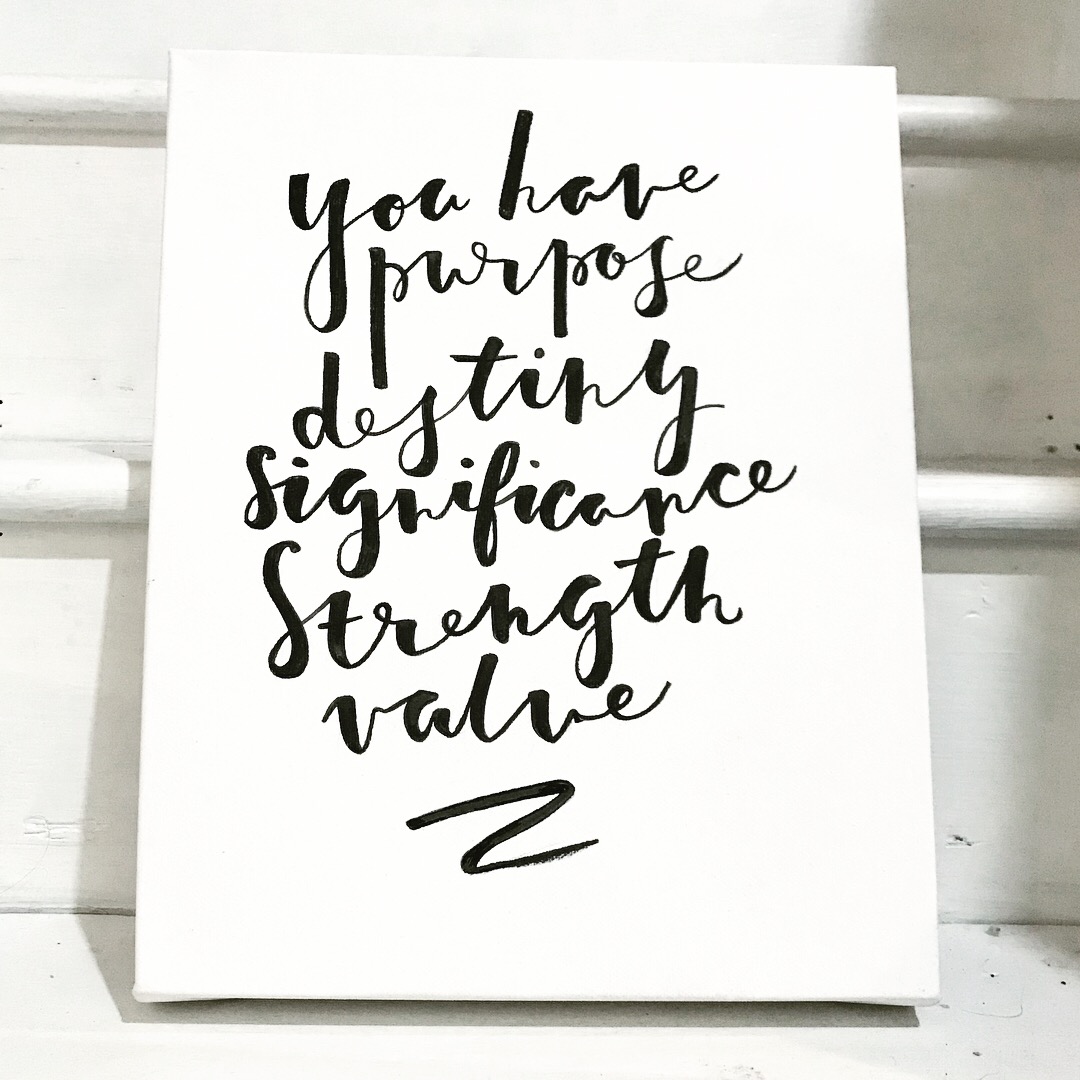 you have
purpose
destiny
significance
Strength
value